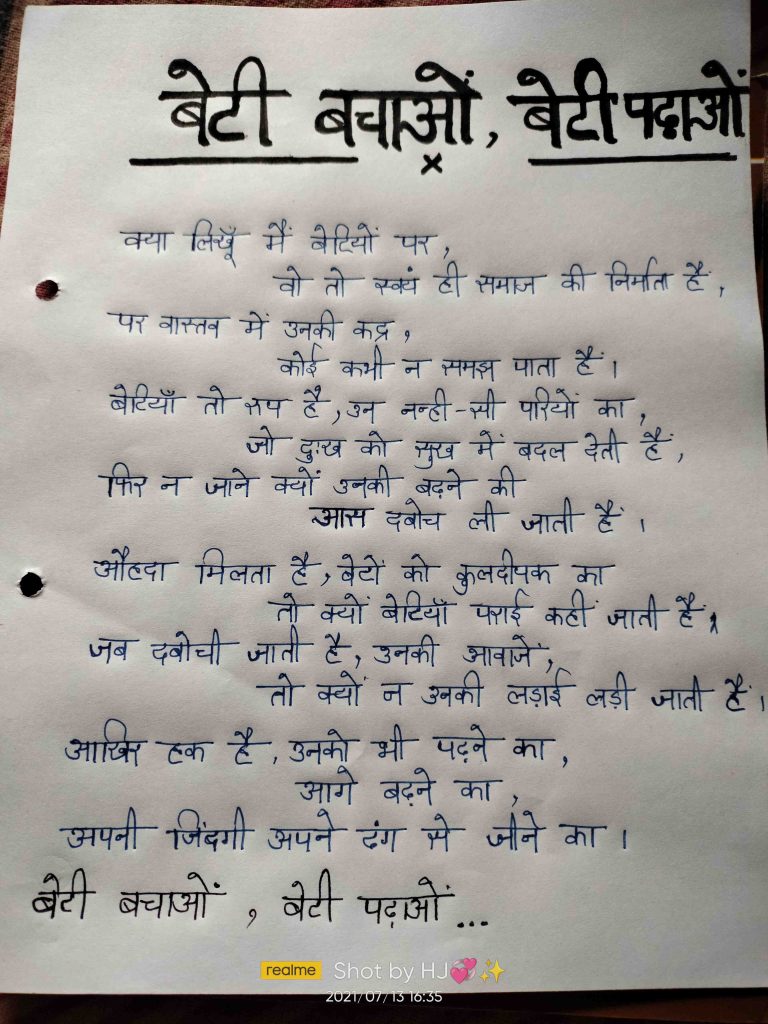 बेटी बचाओं, बेटी पढ़ाओं
x
क्या लिखूँ मैं बेटियों पर,
वो तो स्वयं ही समाज की निर्माता हैं,
पर वास्तव में उनकी कद्र,
कोई कभी न समझ पाता हैं।
बेटियाँ तो रुप है, उन नन्ही-सी परियों का,
जो दुःख को सुख में बदल देती हैं,
फिर न जाने क्यों उनकी बढ़ने की
आस दबोच ली जाती हैं।
औहदा मिलता है, बेटों को कुलदीपक का
तो क्यों बेटियाँ पराई कहीं जाती हैं,
जब दबोची जाती है, उनकी आवाजें,
तो क्यों न उनकी लड़ाई लड़ी जाती हैं।
आखिर हक है, उनको भी पढ़ने का,
आगे बढ़ने का,
अपनी जिंदगी अपने ढंग से जीने का।
बेटी बचाओं, बेटी पढ़ाओं...
realme Shot by HJ💞✨
2021/07/13 16:35